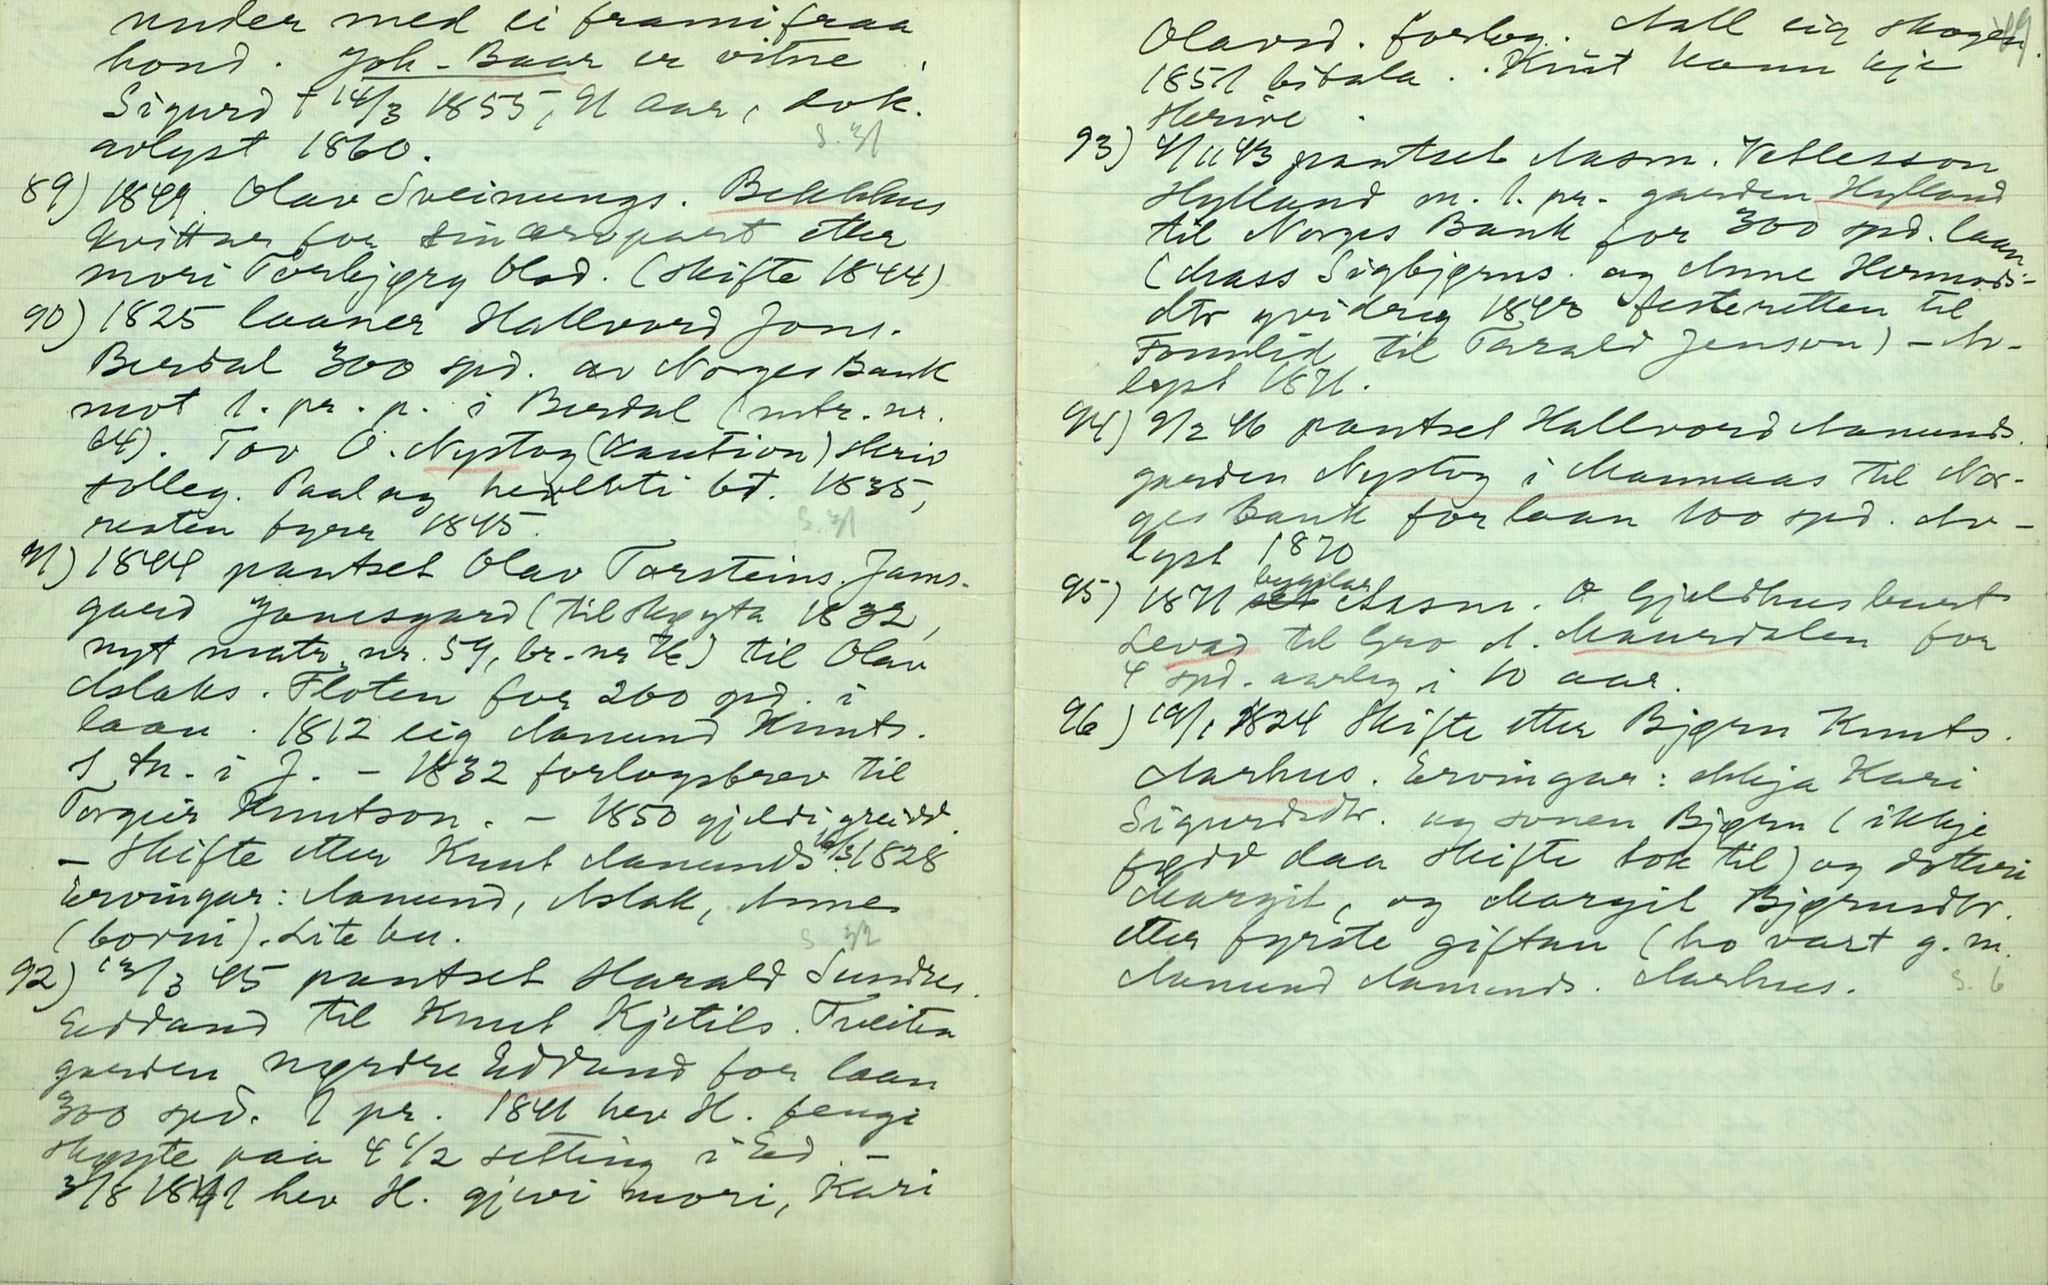 under med ei framifraa
hond. Joh. Baar er vitne.
Sigurd † 14/3 1855, 91 aar, dok.
avlyst 1860. S. 31
89) 1849 Olav Sveinungs. Bekkhus
kvitterer for sin arvepart etter
mori Torbjørg Olsd. (skifte 1844)
90) 1825 laaner Hallvord Jons.
Berdal 300 spd. av Norges Bank
mot 1. pr. p. i Berdal (mtr. nr.
64). Tov O. Nystog (kaution) skriv
tilleg. Paalag heilt bt. 1835,
resten fyrr 1845. S. 31
91) 1844 pantset Olav Torsteins. Jams-
gard Jamsgard (til skøyta 1832,
nyt matr. nr. 59, br. nr 76) til Olav
Aslaks. Floten for 260 spd. i
laan. 1812 eig Aamund Knuts.
1 tn. i J. - 1832 forlogsbrev til
Torgeir Knutson. - 1850 gjeldi greidd.
- Skifte etter Knut Aamunds 10/3 1828
Ervingar: Aamund, Aslak, Anne
(borni). Lite bu. S. 32
92) 13/3 45 pantset Harald Sundres.
Eddand til Knut Kjetils. Tveiten
garden nørdre Eddand for laan
300 spd. 1 pr. 1841 hev H. fengi
skøyte paa 4 1/2 setting i Ed. -
3/8 1841 hev H. gjevi mori, Kari
Olavsd. forlog. Aall eig skogen. 89
1851 bitala. Knut kann kje
skrive.
93) 4/11 43 pantset Aasm. Vetlesson
Hylland m. 1. pr. garden Hylland
til Norges Bank for 300 spd. laan
(Aass Sigbjørns. og Anne Hermods-
dtr yvidreg 1848 festeretten til
Fonnlid til Tarald Jenson) - Av-
lyst 1871.
94) 9/2 46 pantset Hallvord Aamunds.
garden Nystog i Mannaas til Nor-
ges Bank for laan 100 spd. Av-
lyst 1870
95) 1871 bygslar Aasm. O Gjeldhus burt
Levad til Gro A. Maurdalen for
4 spd. aarleg i 10 aar.
96) 19/1 1824 Skifte etter Bjørn Knuts.
Aarhus. Ervingar: ekkja Kari
Sigurdsdtr. og sonen Bjørn (ikkje
fødd daa skifte tok til) og dotteri
Margit, og Margit Bjørnsdtr.
etter fyrste giftan (ho vart g. m.
Aamund Aamunds. Aarhus. S. 6